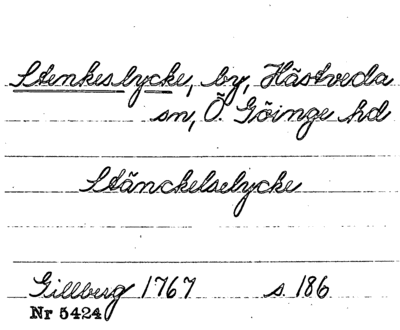 Stenkeslycke, by, Hästveda
sn, Ö. Göinge hd
Stänckelselycke
Gillberg 1767 s 186
Nr 5424